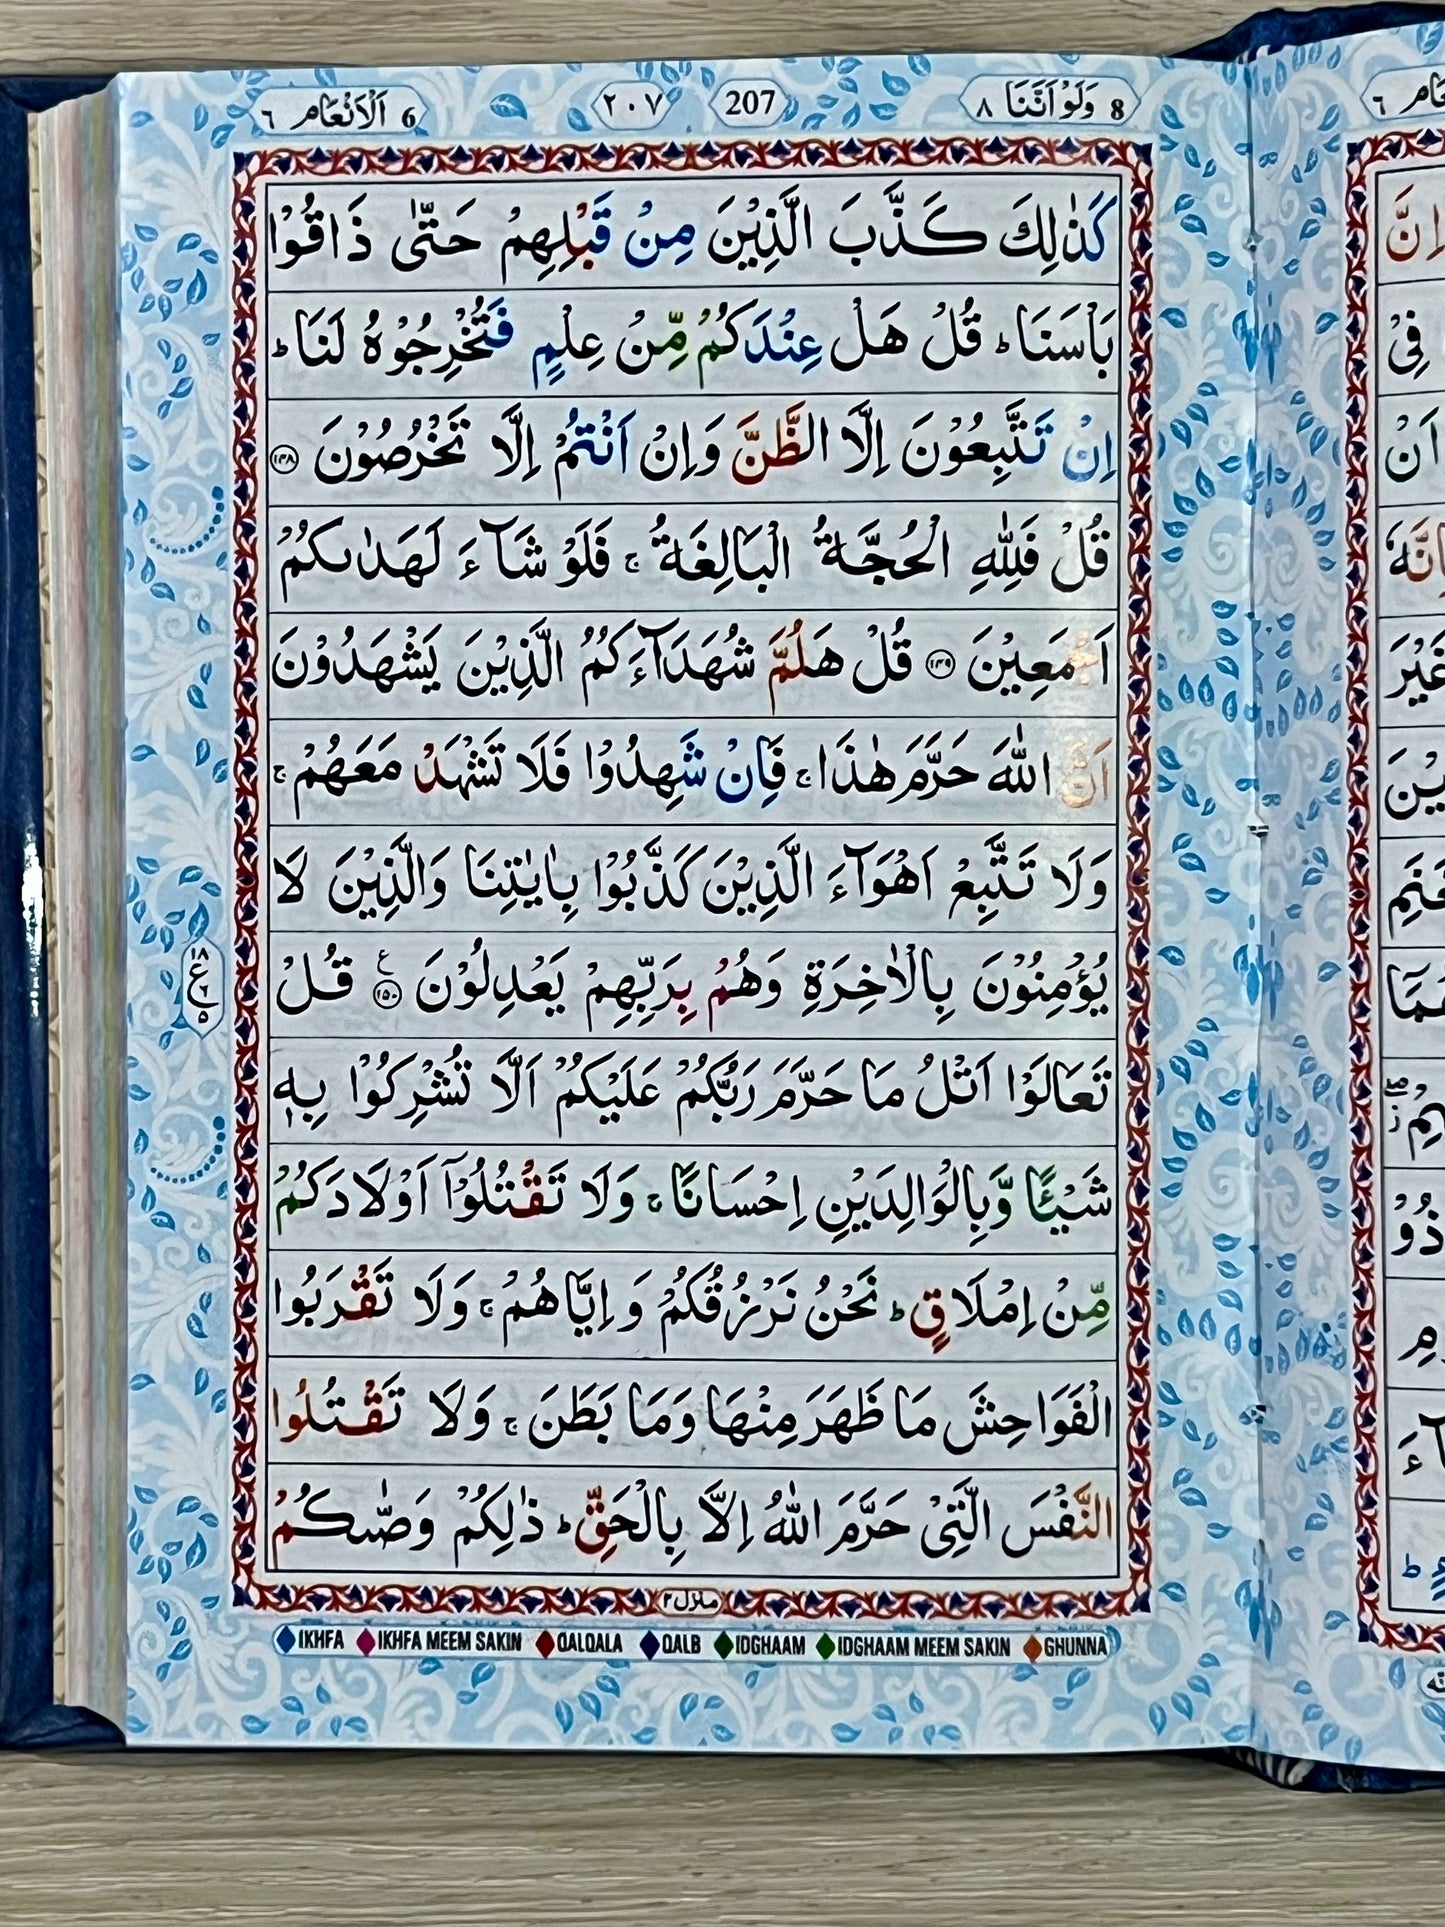 8 وَلَوْ اَنَّنَا ٨
207
٢٠٧
6 اَلْاَنْعَام ٦
كَذٰلِكَ كَذَّبَ الَّذِيْنَ مِنْ قَبْلِهِمْ حَتّٰى ذَاقُوْا
بَاْسَنَا ؕ قُلْ هَلْ عِنْدَكُمْ مِّنْ عِلْمٍ فَتُخْرِجُوْهُ لَنَا ؕ
اِنْ تَتَّبِعُوْنَ اِلَّا الظَّنَّ وَاِنْ اَنْتُمْ اِلَّا تَخْرُصُوْنَ ۝١٤٨
قُلْ فَلِلّٰهِ الْحُجَّةُ الْبَالِغَةُ ۚ فَلَوْ شَآءَ لَهَدٰىكُمْ
اَجْمَعِيْنَ ۝١٤٩ قُلْ هَلُمَّ شُهَدَآءَكُمُ الَّذِيْنَ يَشْهَدُوْنَ
اَنَّ اللّٰهَ حَرَّمَ هٰذَا ۚ فَاِنْ شَهِدُوْا فَلَا تَشْهَدْ مَعَهُمْ ۚ
وَلَا تَتَّبِعْ اَهْوَآءَ الَّذِيْنَ كَذَّبُوْا بِاٰيٰتِنَا وَالَّذِيْنَ لَا
يُؤْمِنُوْنَ بِالْاٰخِرَةِ وَهُمْ بِرَبِّهِمْ يَعْدِلُوْنَ ۝١٥٠ ع قُلْ
١٨ ع ٦ ٥
تَعَالَوْا اَتْلُ مَا حَرَّمَ رَبُّكُمْ عَلَيْكُمْ اَلَّا تُشْرِكُوْا بِهٖ
شَيْـًٔا وَّبِالْوَالِدَيْنِ اِحْسَانًا ۚ وَلَا تَقْتُلُوْٓا اَوْلَادَكُمْ
مِّنْ اِمْلَاقٍ ؕ نَحْنُ نَرْزُقُكُمْ وَاِيَّاهُمْ ۚ وَلَا تَقْرَبُوا
الْفَوَاحِشَ مَا ظَهَرَ مِنْهَا وَمَا بَطَنَ ۚ وَلَا تَقْتُلُوا
النَّفْسَ الَّتِىْ حَرَّمَ اللّٰهُ اِلَّا بِالْحَقِّ ؕ ذٰلِكُمْ وَصّٰىكُمْ
منزل ٢
IKHFA IKHFA MEEM SAKIN QALQALA QALB IDGHAAM IDGHAAM MEEM SAKIN GHUNNA